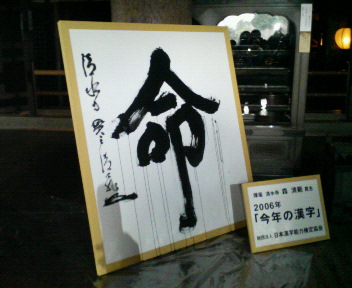 命
清水寺
揮毫 清水寺 森 清範 貫主
2006年
「今年の漢字」
財団法人 日本漢字能力検定協会